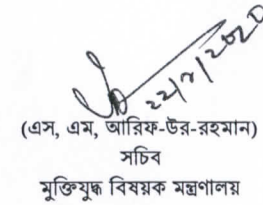 ২২/৭/২০২০
(এস, এম, আরিফ-উর-রহমান)
সচিব
মুক্তিযুদ্ধ বিষয়ক মন্ত্রণালয়